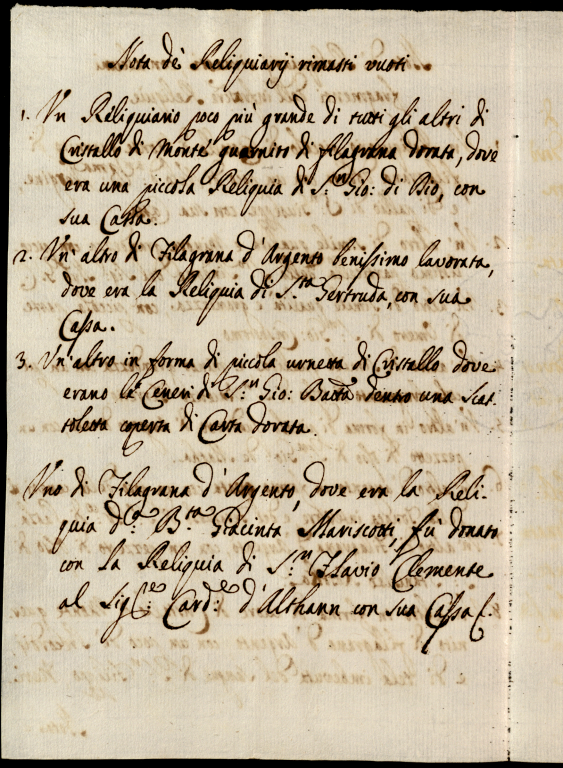 Nota dè Reliquiarij rimasti vuoti
1. Vn Reliquiario poco più grande di tutti gli altri di
Cristallo di Monte guarnito di filagrana dorata, dove
era una piccola Reliquia di S.n Gio: di Dio, con
sua Cassa.
2. Vn altro di Filagrana d'Argento benissimo lavorata,
dove era la Reliquia di S.ta Gertruda, con sua
Cassa.
3. Vn'altro in forma di piccola urnetta di Cristallo dove
erano le Ceneri di S.n Gio: Batta dentro una Scat-
toletta coperta di Carta dorata.
Vno di Filagrana d'Argento, dove era la Reli-
quia d.a B.ta Giacinta Mariscotti, fù donato
con la Reliquia di S.n Flavio Clemente
al Sig.e Card.e d'Althann con sua Cassa